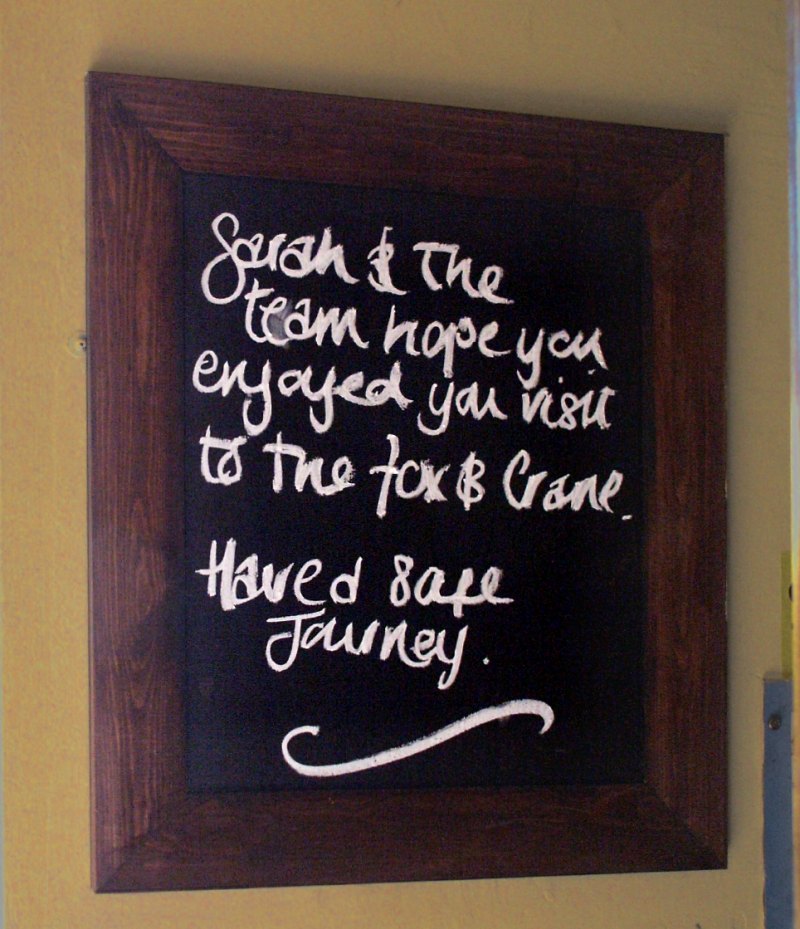 Sarah & The
team hope you
enjoyed you visit
to The fox & Crane.
Have a safe
Journey.